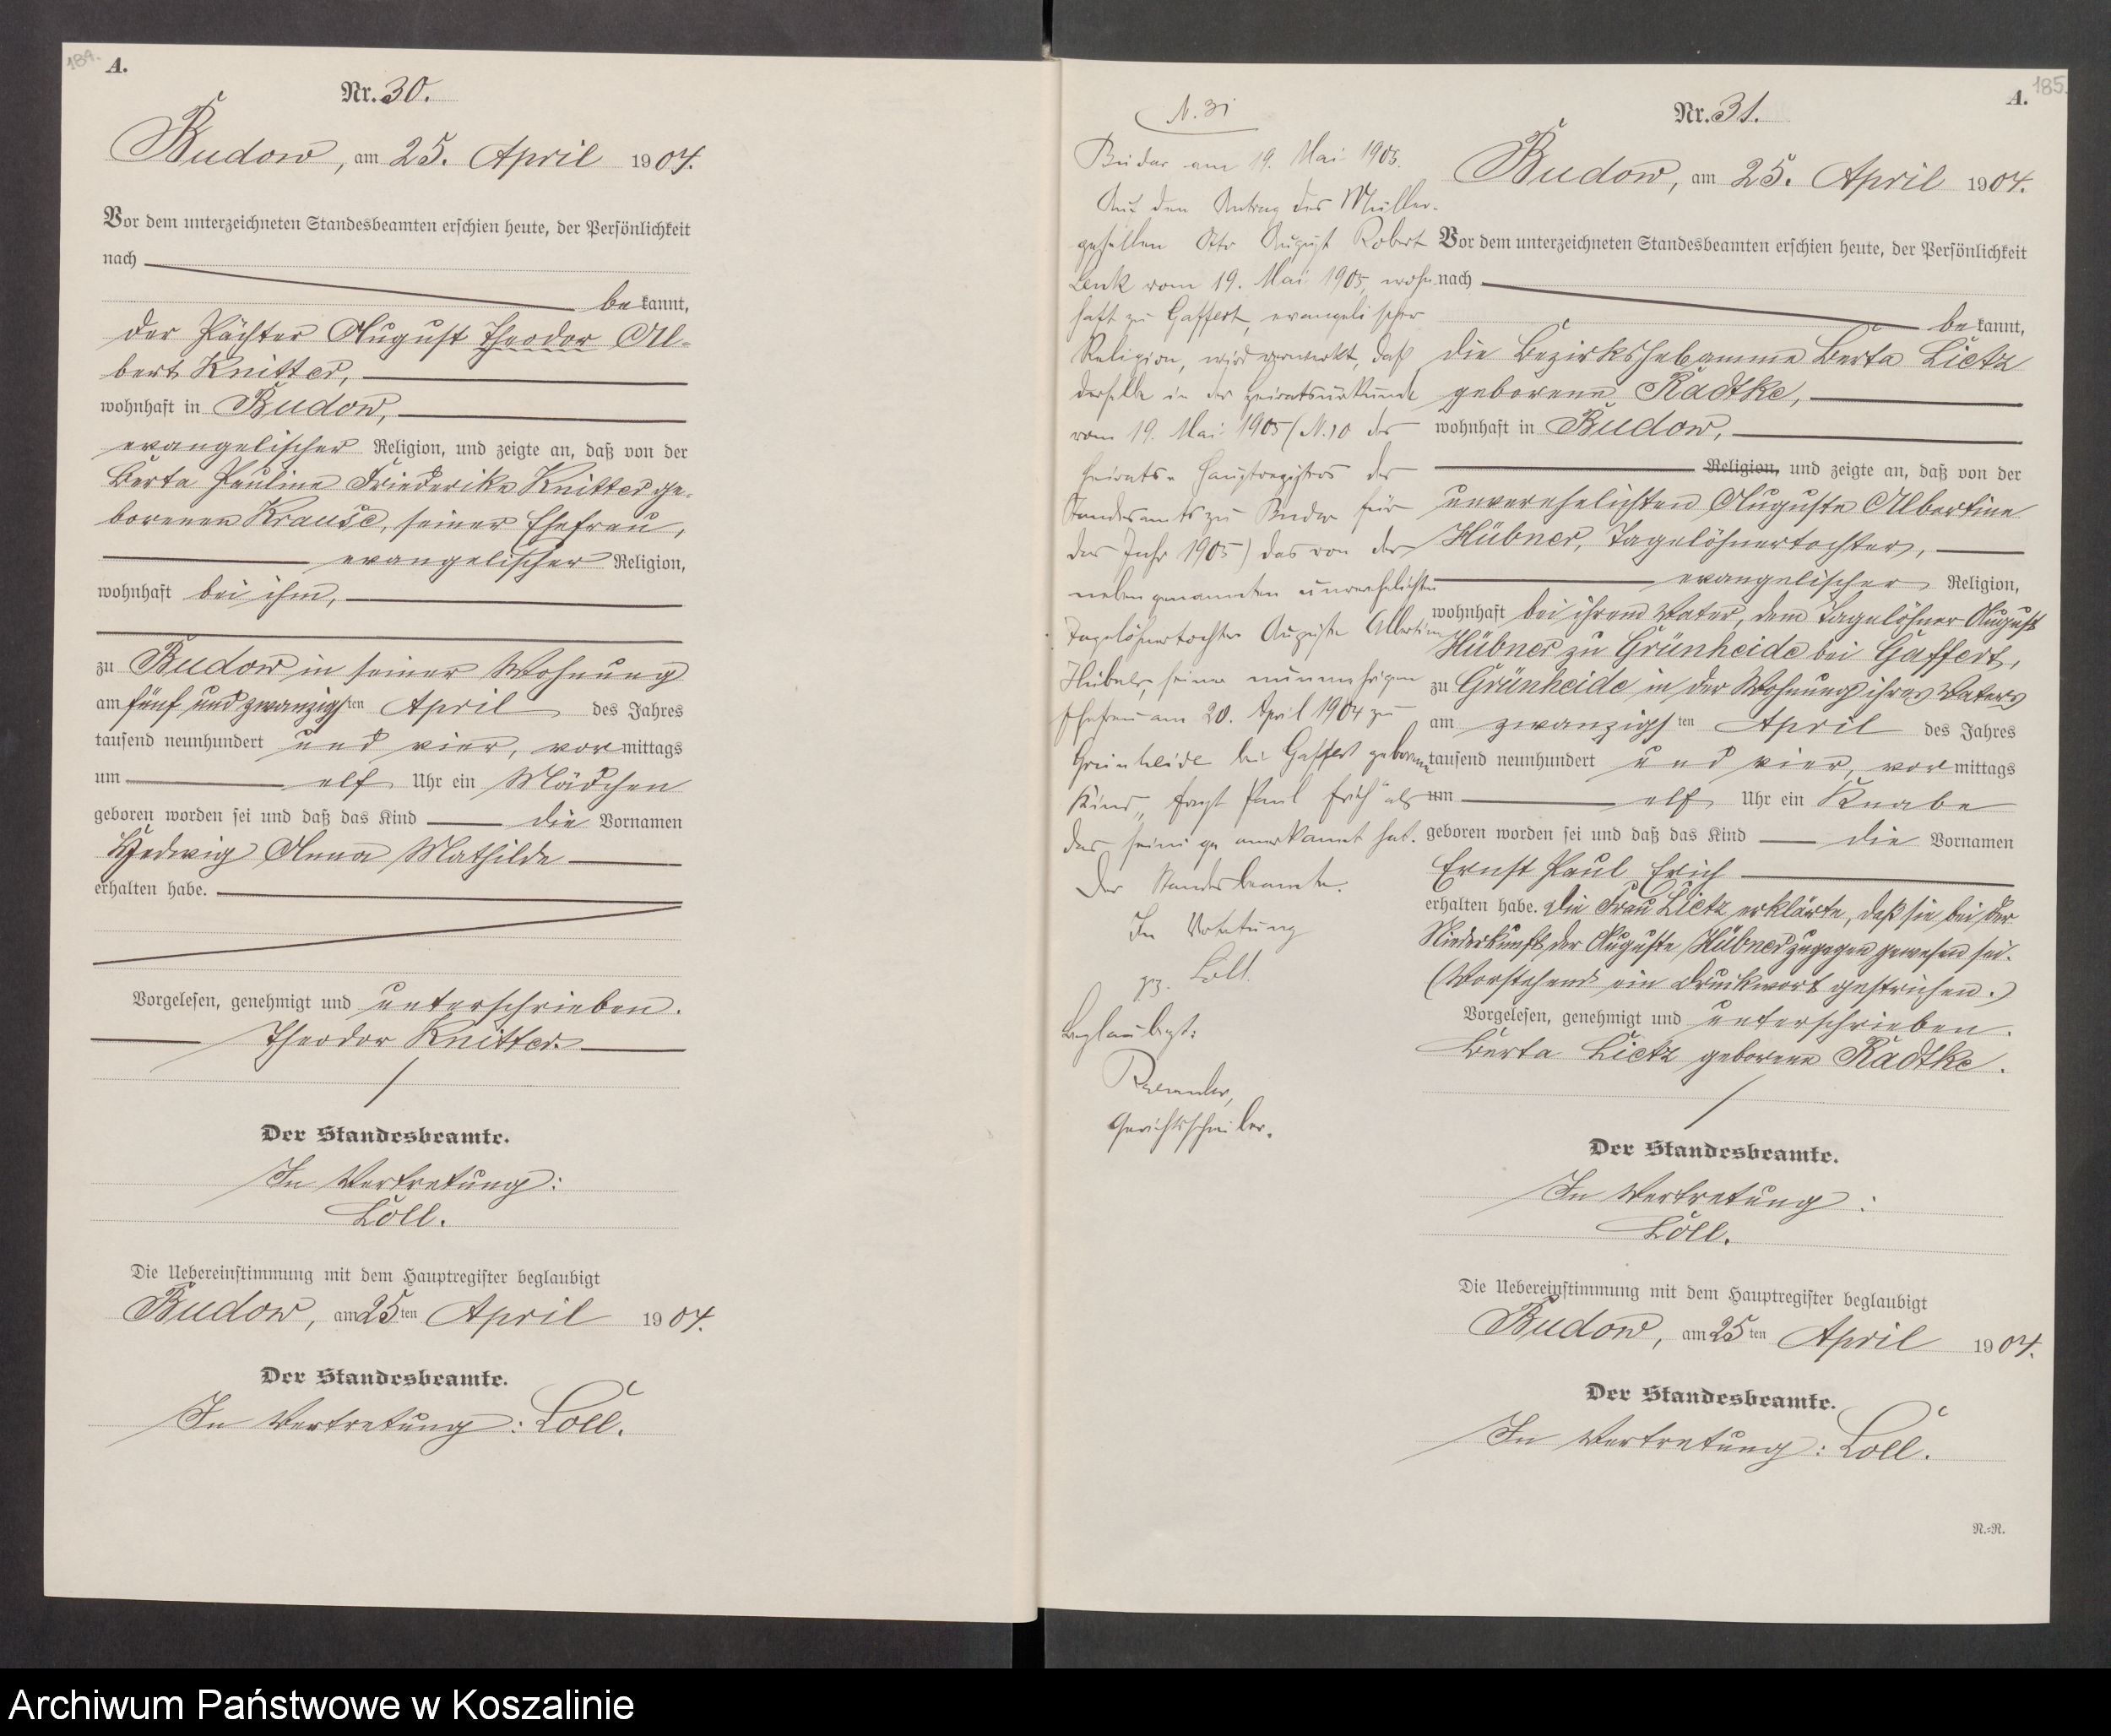 184.
A.
Nr. 30.
Budow, am 25. April 1904.
Vor dem unterzeichneten Standesbeamten erschien heute, der Persönlichkeit
nach
bekannt,
der Pächter August Theodor Al-
bert Knitter,
wohnhaft in Budow,
evangelischer Religion, und zeigte an, daß von der
Berta Pauline Friederike Knitter ge-
borenen Krause, seiner Ehefrau,
evangelischer Religion,
wohnhaft bei ihm,
zu Budow in seiner Wohnung
am fünf und zwanzigsten April des Jahres
tausend neunhundert und vier, vormittags
um elf Uhr ein Mädchen
geboren worden sei und daß das Kind die Vornamen
Hedwig Anna Mathilde
erhalten habe.
Vorgelesen, genehmigt und unterschrieben.
Theodor Knitter.
Der Standesbeamte.
In Vertretung:
Löll.
Die Uebereinstimmung mit dem Hauptregister beglaubigt
Budow, am 25ten April 1904.
Der Standesbeamte.
In Vertretung: Löll.
N. 31
Budow am 19. Mai 1905.
Auf den Antrag des Müller-
gesellen Otto August Robert
Lenk vom 19. Mai 1905, wohn
haft zu Gaffert, evangelischer
Religion, wird vermerkt, daß
derselbe in der Heiratsurkunde
vom 19. Mai 1905 (N. 10 des
Heirats-Hauptregisters des
Standesamts zu Budow für
das Jahr 1905) das von der
nebengenannten unverehelichten
Tagelöhnertochter Auguste Albertine
Hübner, seiner nunmehrigen
Ehefrau am 20. April 1904 zu
Grünheide bei Gaffert geborene
Kind, Paul als
das seinige anerkannt hat.
Der Standesbeamte.
In Vertretung
gz. Löll.
Beglaubigt:
Gerichtsschreiber.
185.
A.
Nr. 31.
Budow, am 25. April 1904.
Vor dem unterzeichneten Standesbeamten erschien heute, der Persönlichkeit
nach
bekannt,
die Bezirkshebamme Berta Lietz
geborene Radtke,
wohnhaft in Budow,
Religion, und zeigte an, daß von der
unverehelichten Auguste Albertine
Hübner, Tagelöhnertochter,
evangelischer Religion,
wohnhaft bei ihrem Vater, dem Tagelöhner August
Hübner zu Grünheide bei Gaffert,
zu Grünheide in der Wohnung ihres Vaters
am zwanzigsten April des Jahres
tausend neunhundert und vier, vormittags
um elf Uhr ein Knabe
geboren worden sei und daß das Kind die Vornamen
Ernst Paul Erich
erhalten habe. Die Frau Lietz erklärte, daß sie bei der
Niederkunft der Auguste Hübner zugegen gewesen sei.
(Vorstehend ein Druckwort gestrichen.)
Vorgelesen, genehmigt und unterschrieben.
Berta Lietz geborene Radtke.
Der Standesbeamte.
In Vertretung:
Löll.
Die Uebereinstimmung mit dem Hauptregister beglaubigt
Budow, am 25ten April 1904.
Der Standesbeamte.
In Vertretung: Löll.
N.=R.
Archiwum Państwowe w Koszalinie